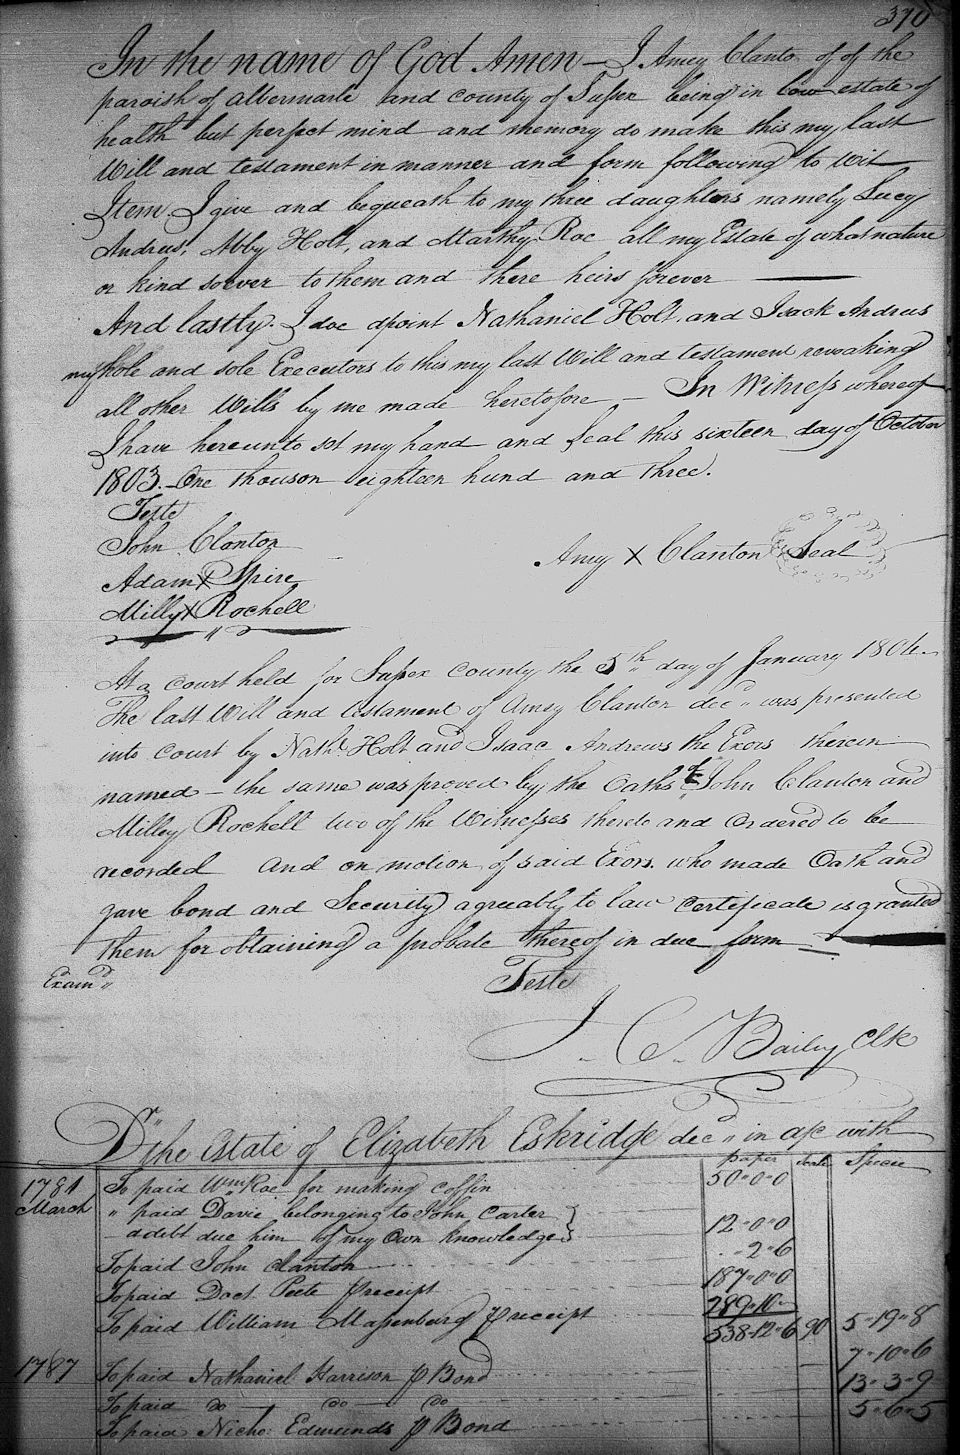 370
In the name of God Amen — I Amey Clanto of of the
paroish of Albermarle and county of Sussex being in low estate of
health but perfect mind and memory do make this my last
Will and testament in manner and form following to wit
Item. I give and bequeath to my three daughters namely Lucy
Andrus, Abby Holt, and Marthy Roe all my Estate of what nature
or kind soever to them and there heirs forever —
And lastly. I doe apoint Nathaniel Holt, and Isack Andrus
my hole and sole Executors to this my last Will and testament revoaking
all other Wills by me made heretofore — In Witness whereof
I have hereunto set my hand and Seal this sixteen day of October
1803. One thouson eighteen hund and three.
Teste
John Clanton
Amy X Clanton Seal
Adam X Spire
Milly X Rochell
At a court held for Sussex county the 5th day of January 1804.
The last Will and testament of Amey Clanton decd was presented
into court by Nathl Holt and Isaac Andrews the Exors therein
named — the same was proved by the Oaths of John Clanton and
Milley Rochell two of the Witnesses thereto and Ordered to be
recorded And on motion of said Exors. who made Oath and
gave bond and Security agreeably to law certificate is granted
them for obtaining a probate thereof in due form —
Examd
Teste
J. C. Bailey Clk
Dr the Estate of Elizabeth Eskridge decd in a/c with
paper Scale Specie
1781 To paid Wm Roe for making coffin 50-0-0
March " paid Davie belonging to John Carter
a debt due him of my own knowledge 12-0-0
To paid John Clanton -2-6
To paid Doct. Peete p receipt 187-0-0
To paid William Massenburg p receipt 289-10-
538-12-6 90 5-19-8
1787 To paid Nathaniel Harrison p Bond 7-10-6
To paid do — do — do 13-3-9
To paid Nicho: Edmunds p Bond 5-6-5